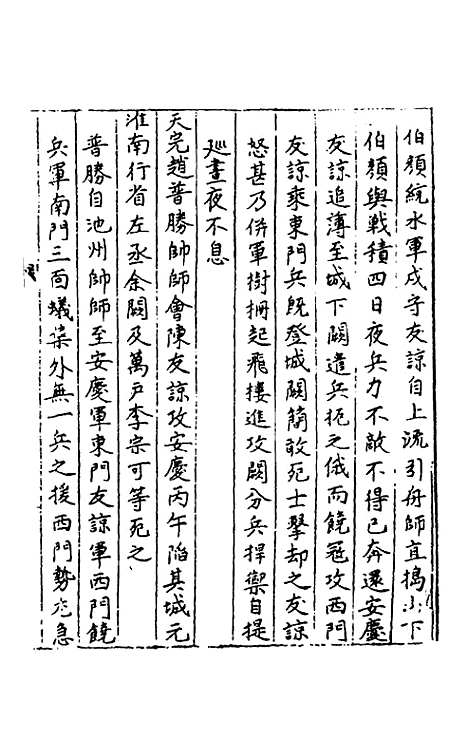 伯顔統水軍戍守友諒自上流引舟師直搗山下
伯顔與戰積四日夜兵力不敵不得已奔還安慶
友諒追薄至城下闕遣兵扼之俄而饒冦攻西門
友諒乘東門兵既登城闕簡敢死士擊却之友諒
怒甚乃併軍樹柵起飛樓進攻闕分兵捍禦自提
廵晝夜不息
天完趙普勝帥師會陳友諒攻安慶丙午陷其城元
淮南行省左丞余闕及萬戸李宗可等死之
普勝自池州帥師至安慶軍東門友諒軍西門饒
兵軍南門三面蟻集外無一兵之援西門勢尤急